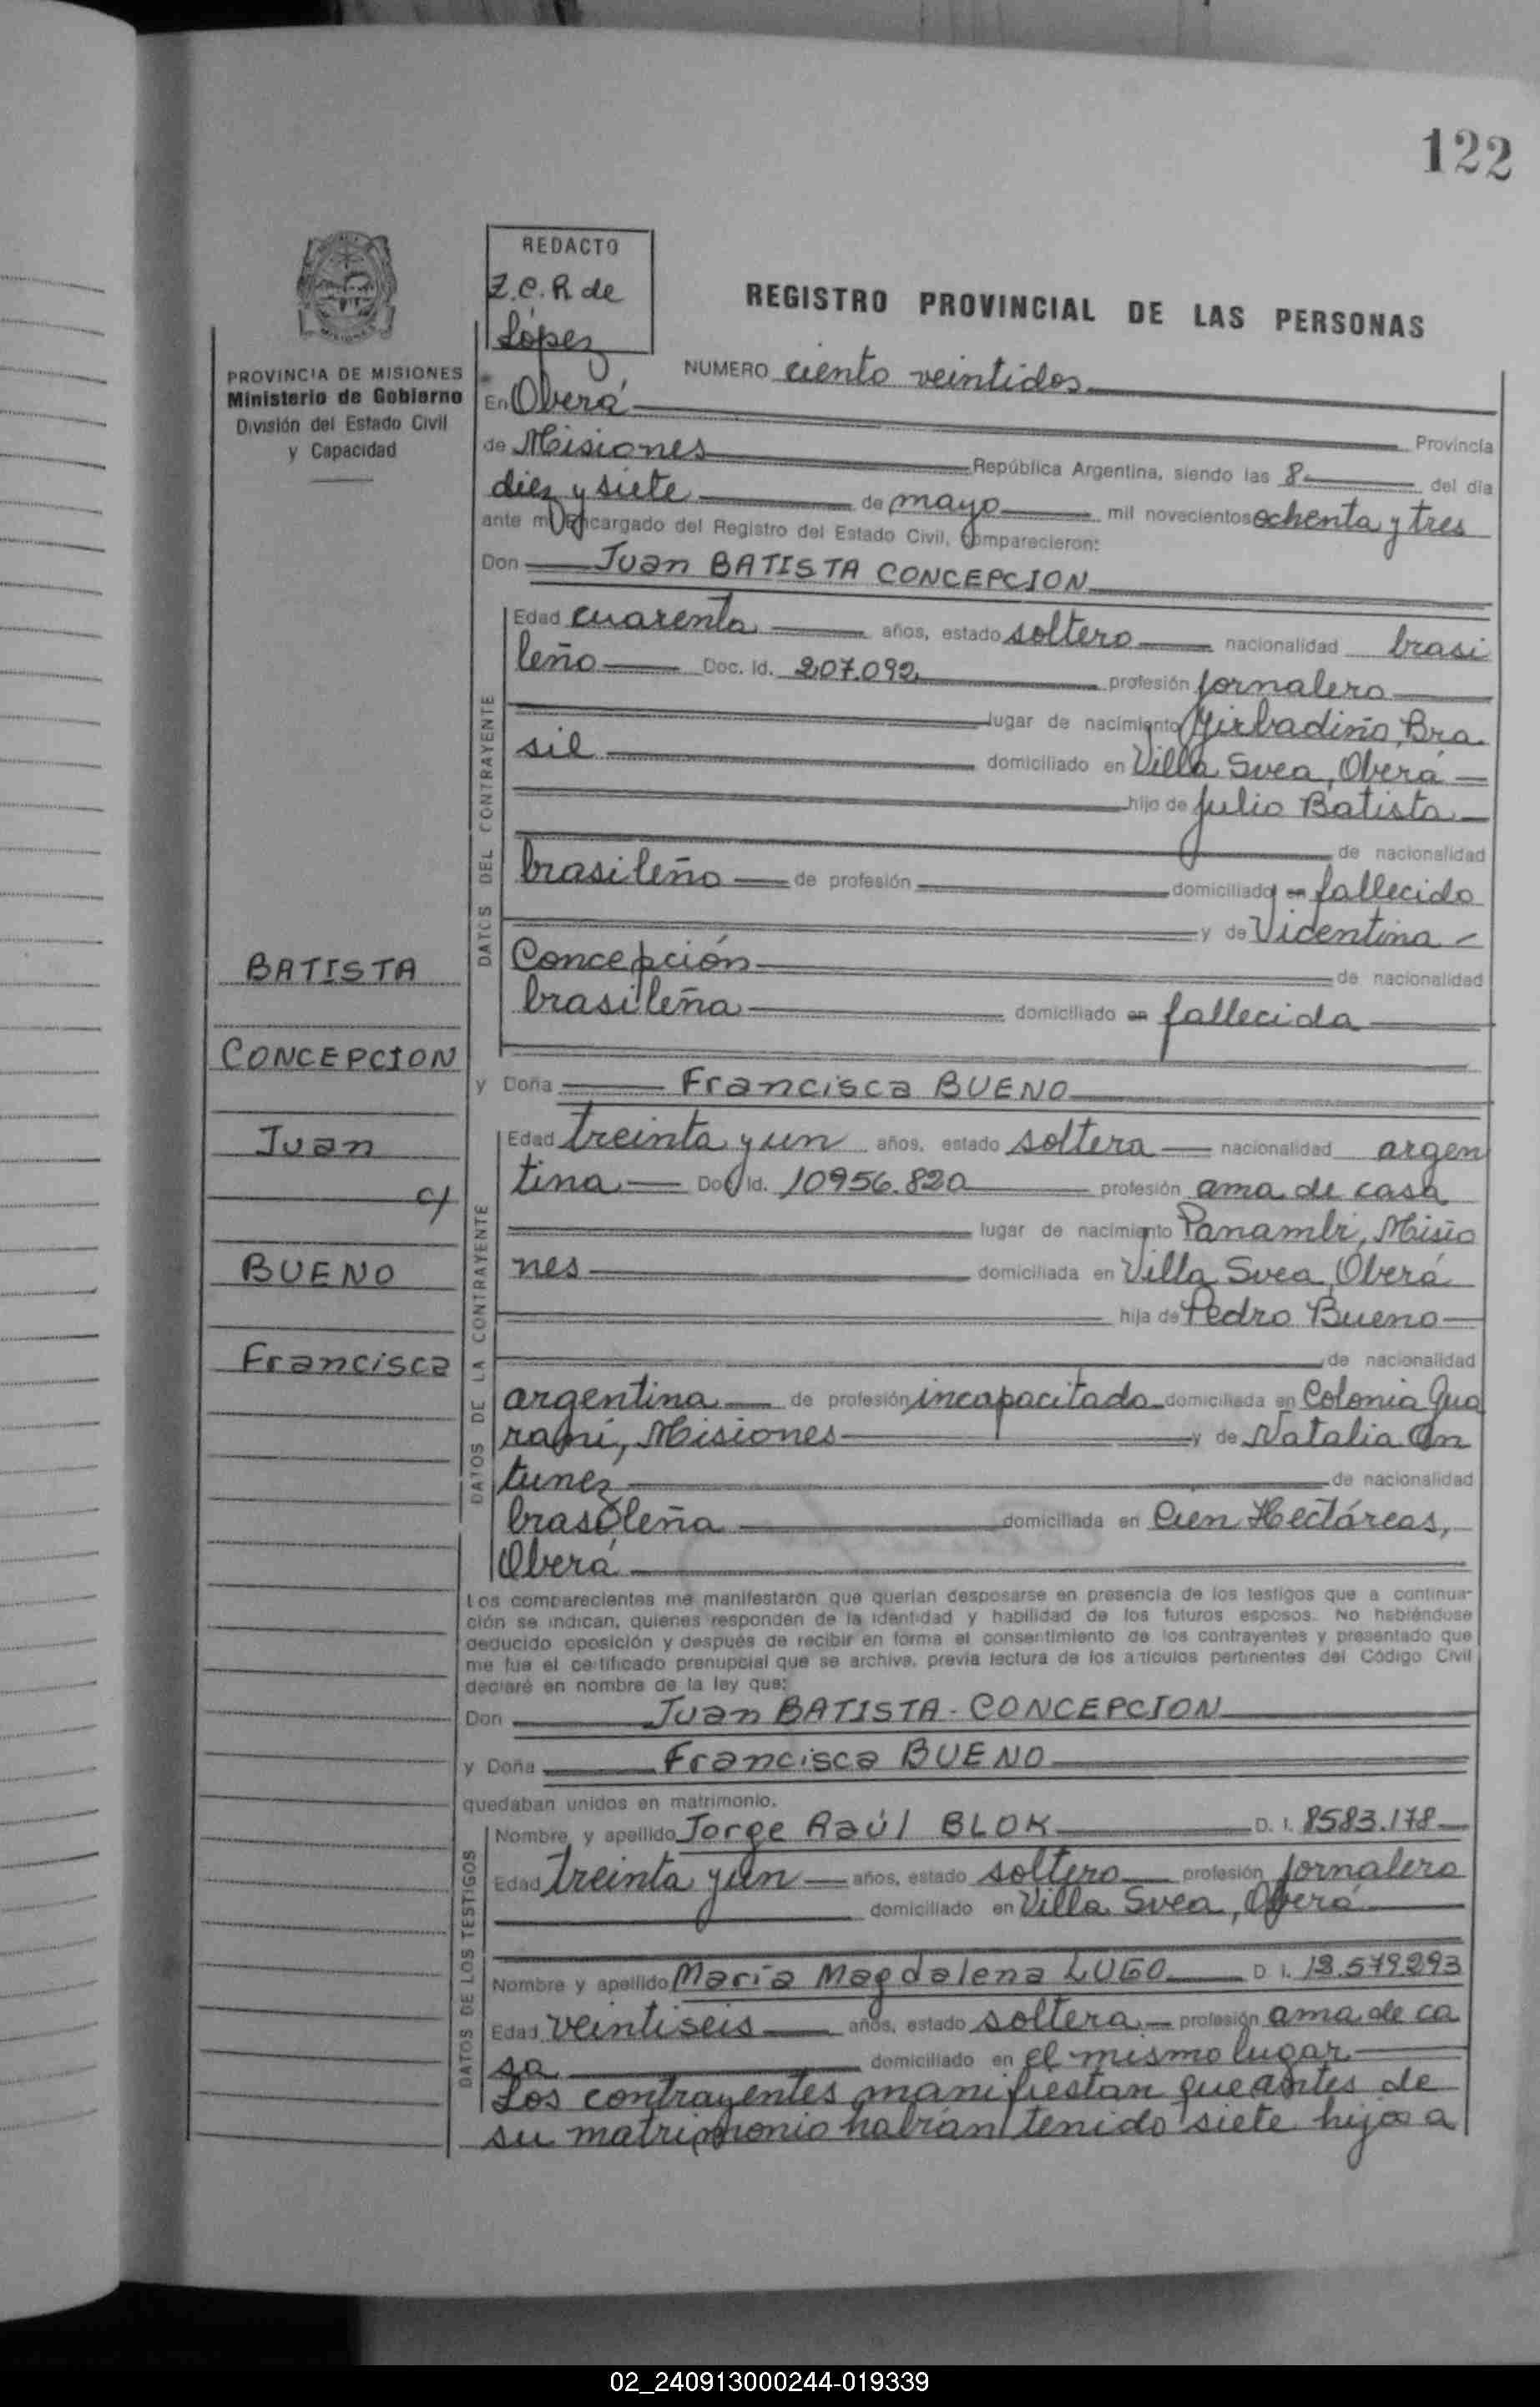 122
REDACTO
Z.C.R de
López
REGISTRO PROVINCIAL DE LAS PERSONAS
PROVINCIA DE MISIONES
Ministerio de Gobierno
División del Estado Civil
y Capacidad
NUMERO ciento veintidos
En Oberá Provincia
de Misiones República Argentina, siendo las 8 del día
diez y siete de mayo mil novecientos ochenta y tres
ante mí Encargado del Registro del Estado Civil, comparecieron:
Don Juan BATISTA CONCEPCION
DATOS DEL CONTRAYENTE
Edad cuarenta años, estado soltero nacionalidad brasi
leño Doc. Id. 207.092 profesión jornalero
lugar de nacimiento Bra
sil domiciliado en Villa Svea, Oberá
hijo de Julio Batista
de nacionalidad
brasileño de profesión domiciliado en fallecido
y de Vicentina
Concepción de nacionalidad
brasileña domiciliado en fallecida
BATISTA
CONCEPCION
Juan
c/
BUENO
Francisca
y Doña Francisca BUENO
DATOS DE LA CONTRAYENTE
Edad treinta y un años, estado soltera nacionalidad argen
tina Doc Id. 10956.820 profesión ama de casa
lugar de nacimiento Panambí, Misio
nes domiciliada en Villa Svea, Oberá
hija de Pedro Bueno
de nacionalidad
argentina de profesión incapacitado domiciliada en Colonia Gua
raní, Misiones y de Natalia An
tunez de nacionalidad
brasileña domiciliada en Cien Hectáreas,
Oberá
Los comparecientes me manifestaron que querían desposarse en presencia de los testigos que a continua-
ción se indican, quienes responden de la identidad y habilidad de los futuros esposos. No habiéndose
deducido oposición y después de recibir en forma el consentimiento de los contrayentes y presentado que
me fue el certificado prenupcial que se archiva, previa lectura de los artículos pertinentes del Código Civil
declaré en nombre de la ley que:
Don Juan BATISTA - CONCEPCION
y Doña Francisca BUENO
quedaban unidos en matrimonio.
DATOS DE LOS TESTIGOS
Nombre y apellido Jorge Raúl BLOK D. I. 8583.178
Edad treinta y un años, estado soltero profesión jornalero
domiciliado en Villa Svea, Oberá
Nombre y apellido María Magdalena LUGO D I. 12.579293
Edad veintiseis años, estado soltera profesión ama de ca
sa domiciliado en el mismo lugar
Los contrayentes manifiestan que antes de
su matrimonio habían tenido siete hijos a
02_240913000244-019339